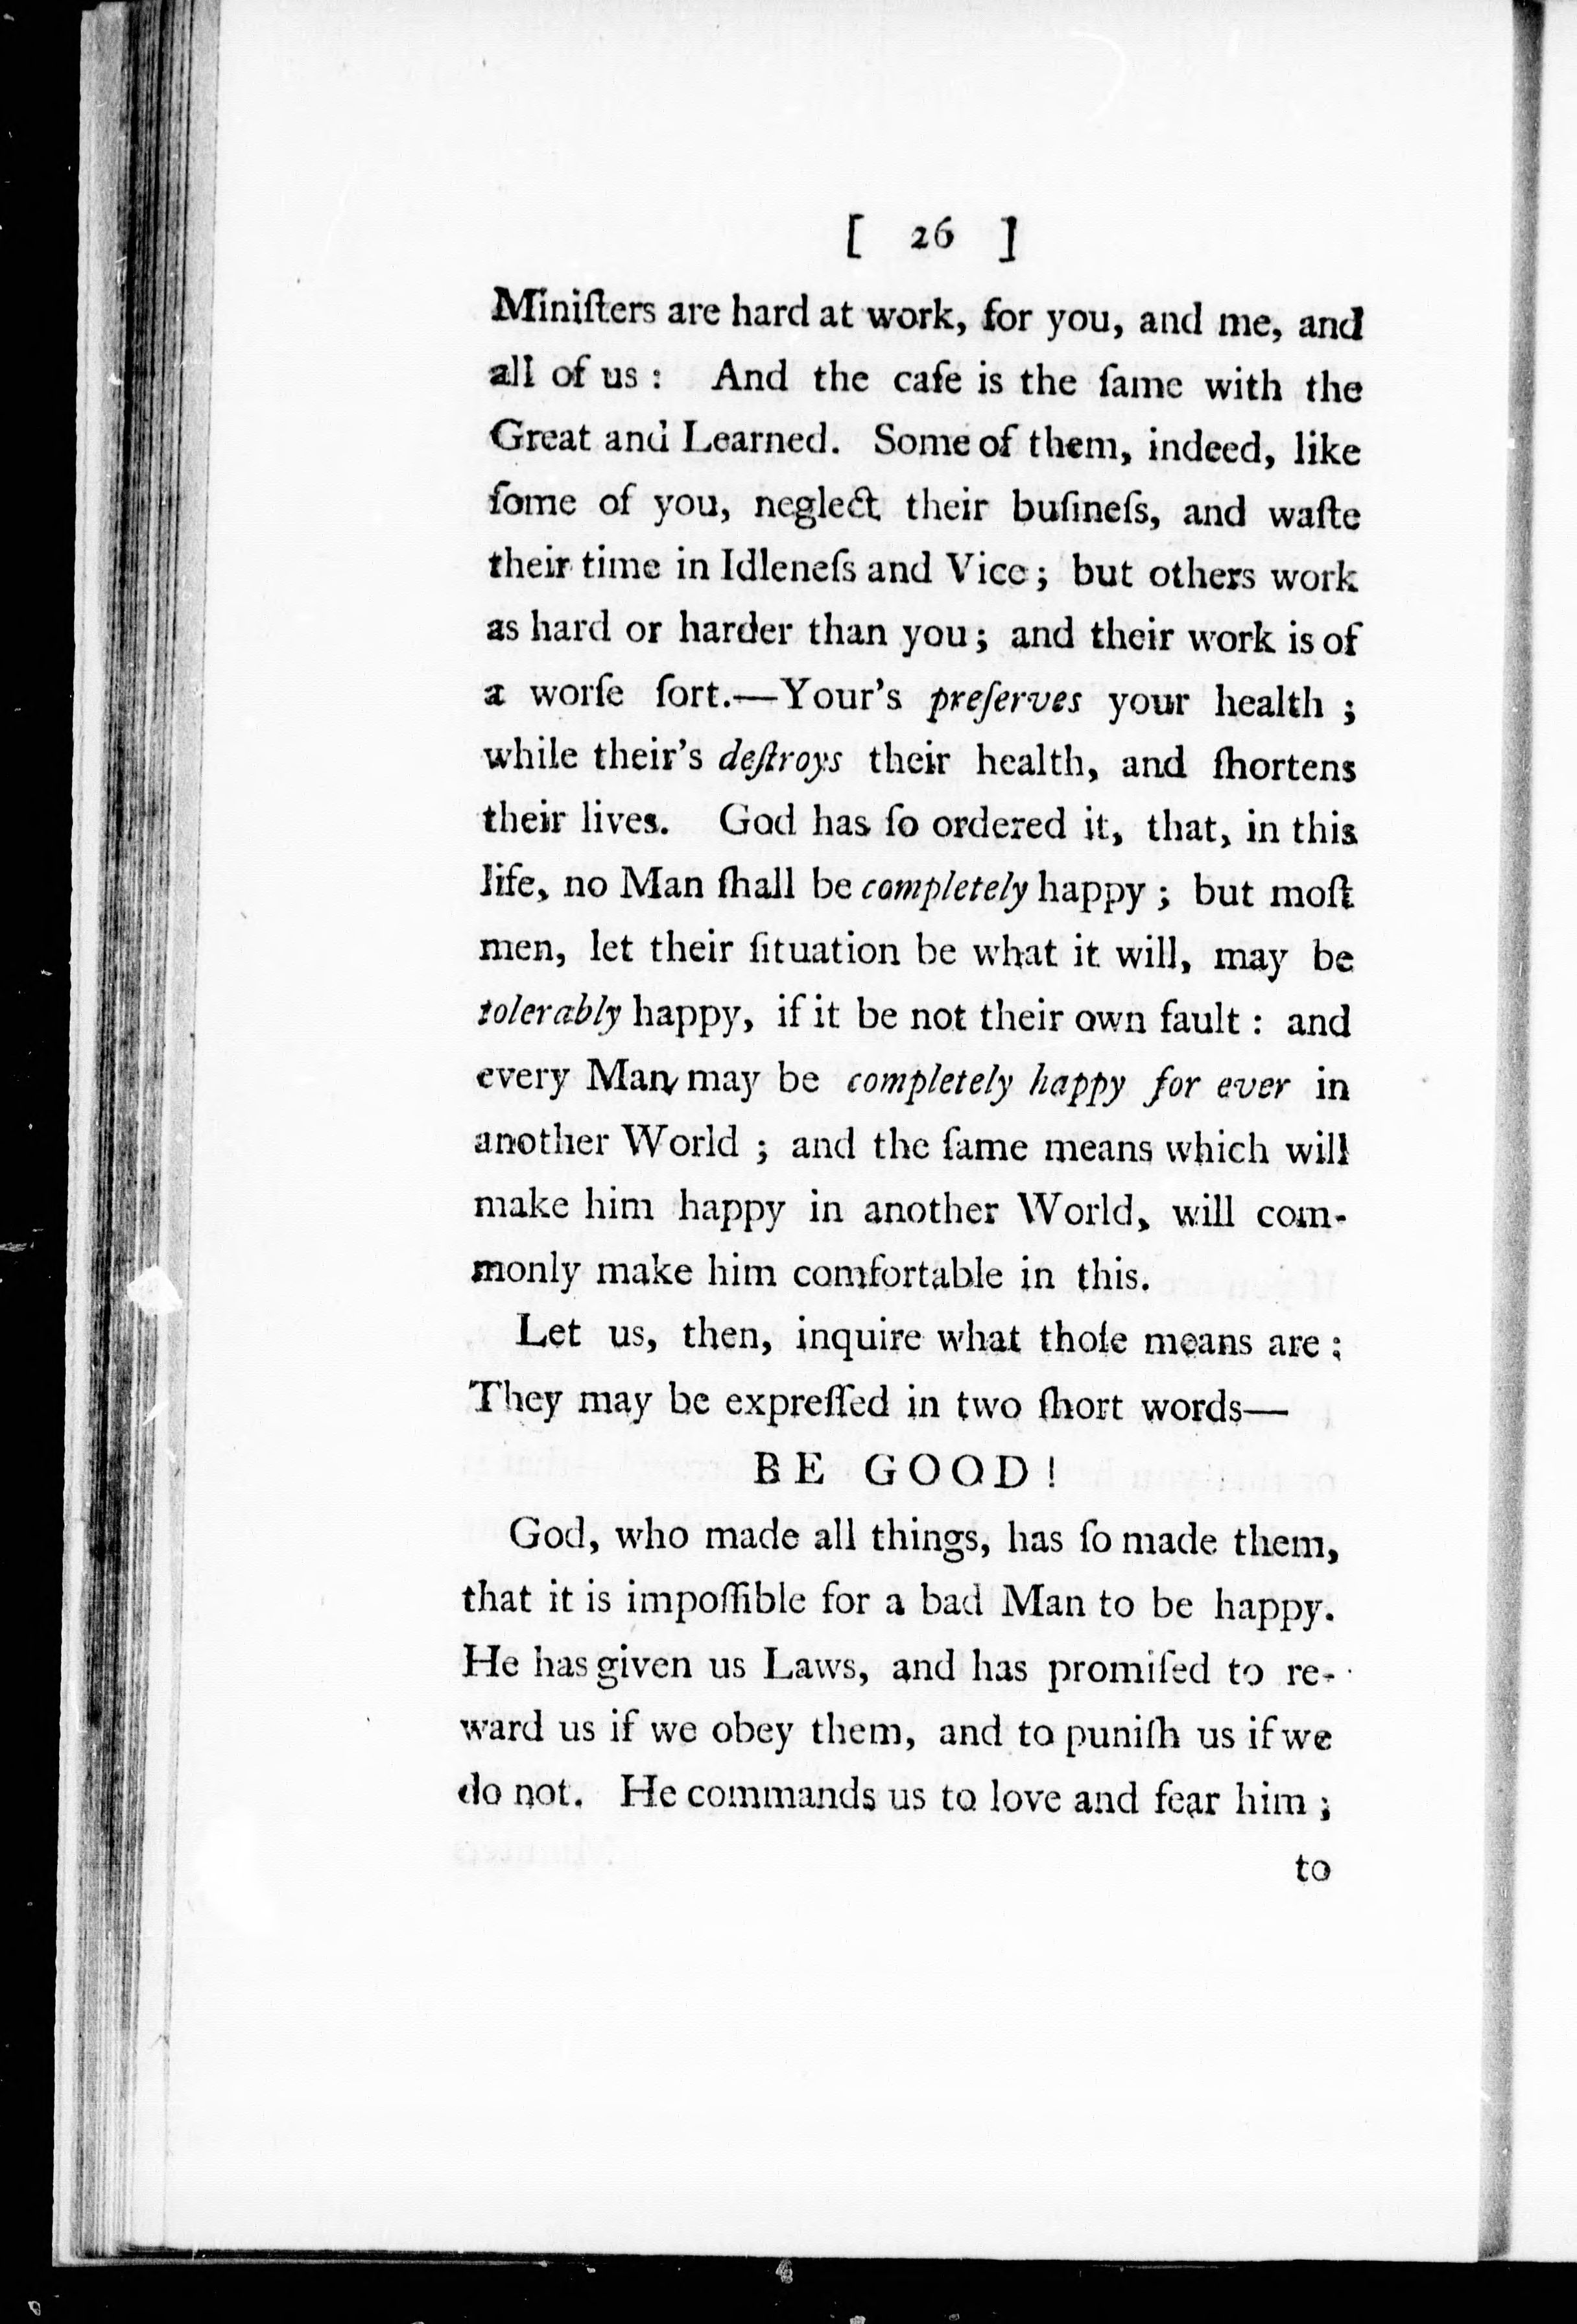 [ 26 ]
Miniſters are hard at work, for you, and me, and
all of us : And the caſe is the ſame with the
Great and Learned. Some of them, indeed, like
ſome of you, neglect their buſineſs, and waſte
their time in Idleneſs and Vice ; but others work
as hard or harder than you ; and their work is of
a worſe ſort.—Your's preſerves your health ;
while their's deſtroys their health, and ſhortens
their lives. God has ſo ordered it, that, in this
life, no Man ſhall be completely happy ; but moſt
men, let their ſituation be what it will, may be
tolerably happy, if it be not their own fault : and
every Man may be completely happy for ever in
another World ; and the ſame means which will
make him happy in another World, will com-
monly make him comfortable in this.
Let us, then, inquire what thoſe means are :
They may be expreſſed in two ſhort words—
BE GOOD !
God, who made all things, has ſo made them,
that it is impoſſible for a bad Man to be happy.
He has given us Laws, and has promiſed to re-
ward us if we obey them, and to puniſh us if we
do not. He commands us to love and fear him ;
to